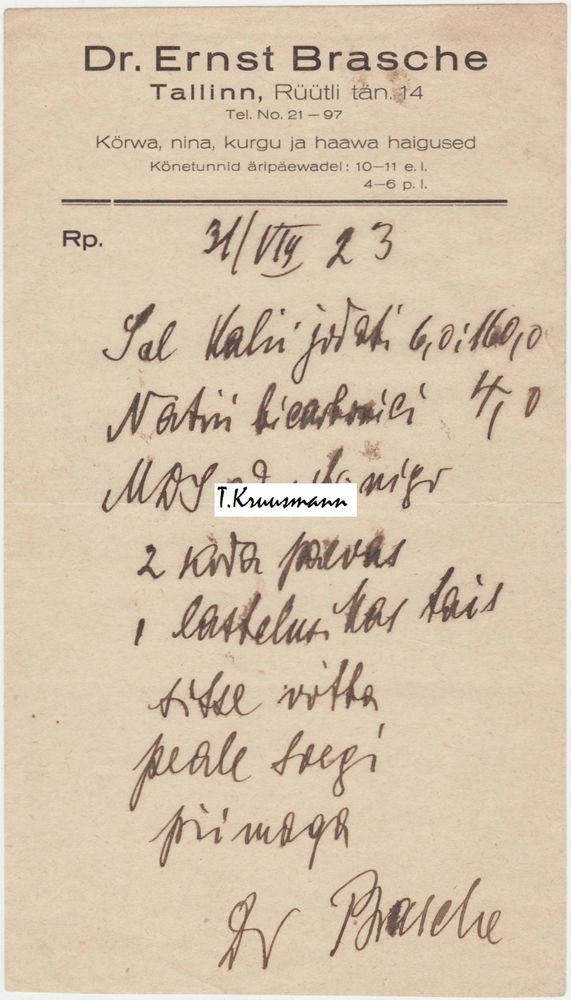 Dr. Ernst Brasche
Tallinn, Rüütli tän. 14
Tel. No. 21 — 97
Kõrwa, nina, kurgu ja haawa haigused
Kõnetunnid äripäewadel: 10—11 e. l.
4—6 p. l.
Rp. 31/VIII 23
Sol Kalii jodati 6,0:160,0
Natrii bicarbonici 4,0
MDS
T.Kruusmann
2 korda päevas
1 lastelusikas täis
sisse võtta
peale söegi
piimaga
Dr Brasche